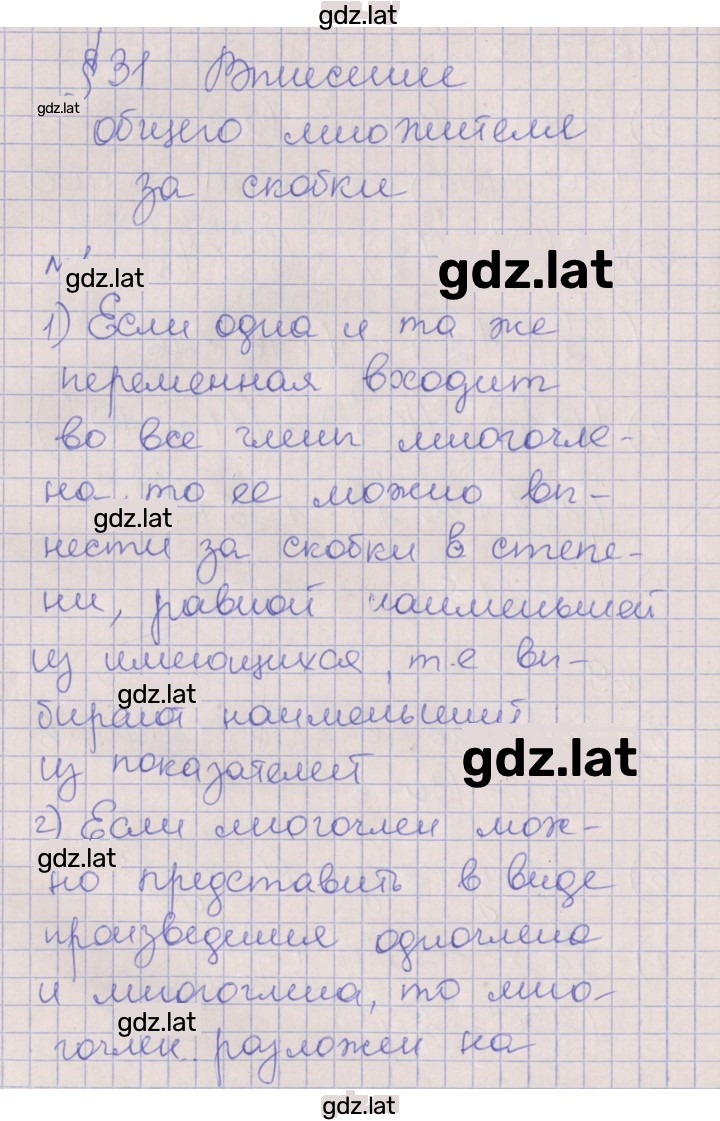 gdz.lat
§ 31 Вынесение
gdz.lat
общего множителя
за скобки
№ 1
gdz.lat
gdz.lat
1) Если одна и та же
переменная входит
во все члены многочле-
на то ее можно вы-
gdz.lat
нести за скобки в степе-
ни, равной наименьшей
из имеющихся, т.е вы-
gdz.lat
бирают наименьший
из показателей
gdz.lat
2) Если многочлен мож-
gdz.lat
но представить в виде
произведения одночлена
и многочлена, то мно-
gdz.lat
гочлен разложен на
gdz.lat